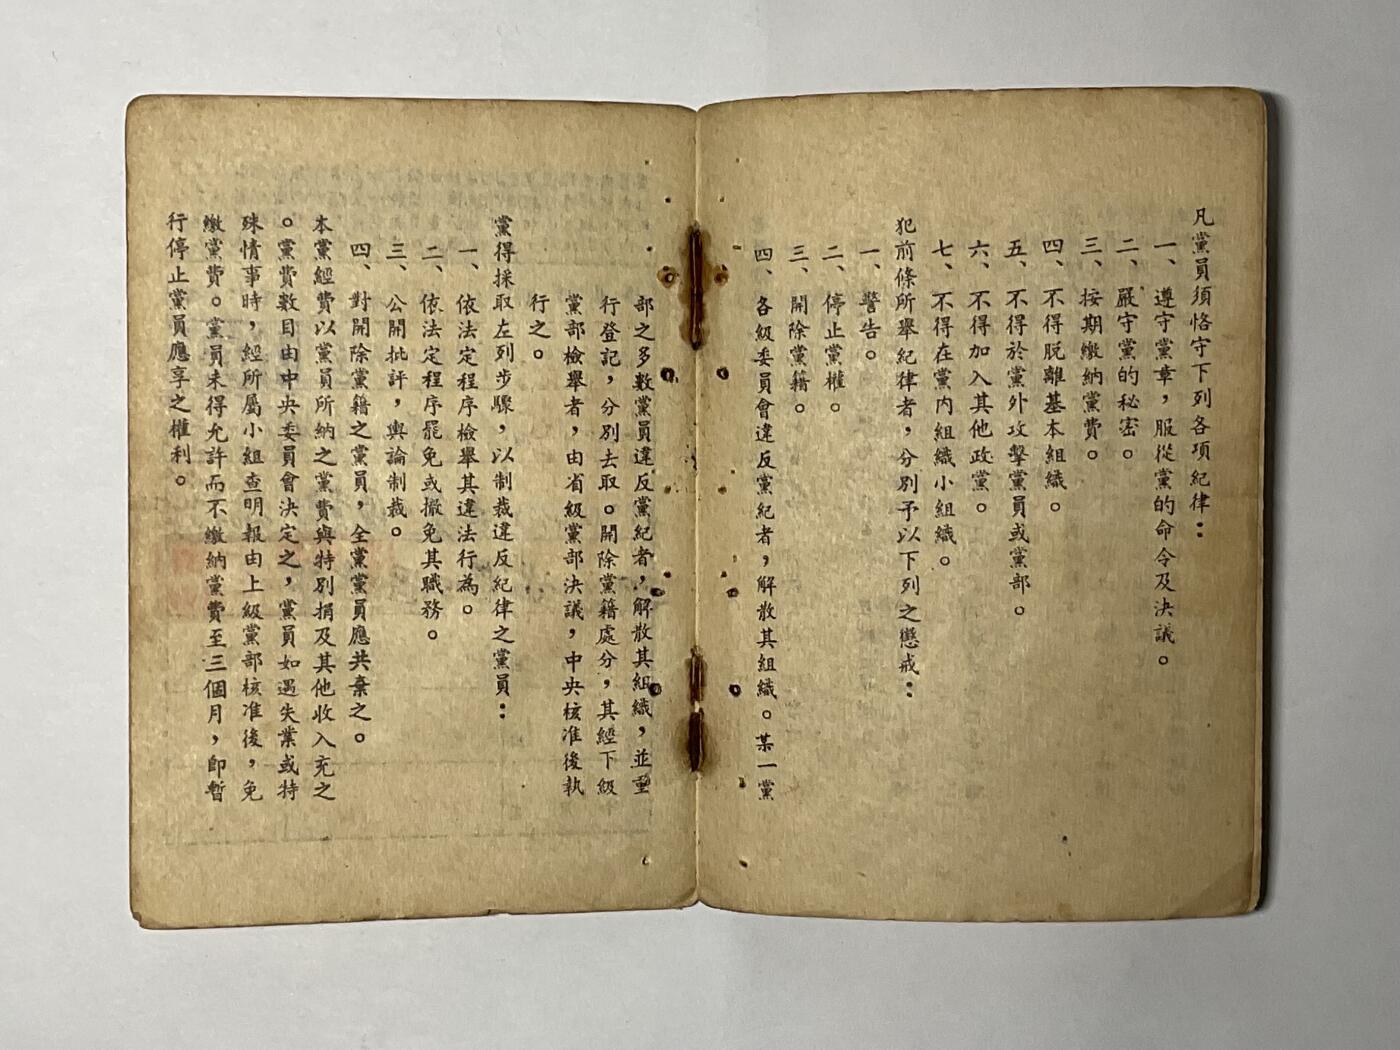 凡黨員須恪守下列各項紀律：
一、遵守黨章，服從黨的命令及決議。
二、嚴守黨的秘密。
三、按期繳納黨費。
四、不得脫離基本組織。
五、不得於黨外攻擊黨員或黨部。
六、不得加入其他政黨。
七、不得在黨內組織小組織。
犯前條所舉紀律者，分別予以下列之懲戒：
一、警告。
二、停止黨權。
三、開除黨籍。
四、各級委員會違反黨紀者，解散其組織。某一黨
部之多數黨員違反黨紀者，解散其組織，並重
行登記，分別去取。開除黨籍處分，其經下級
黨部檢舉者，由省級黨部決議，中央核准後執
行之。
黨得採取左列步驟，以制裁違反紀律之黨員：
一、依法定程序檢舉其違法行為。
二、依法定程序罷免或撤免其職務。
三、公開批評，輿論制裁。
四、對開除黨籍之黨員，全黨黨員應共棄之。
本黨經費以黨員所納之黨費與特別捐及其他收入充之
。黨費數目由中央委員會決定之，黨員如遇失業或特
殊情事時，經所屬小組查明報由上級黨部核准後，免
繳黨費。黨員未得允許而不繳納黨費至三個月，即暫
行停止黨員應享之權利。